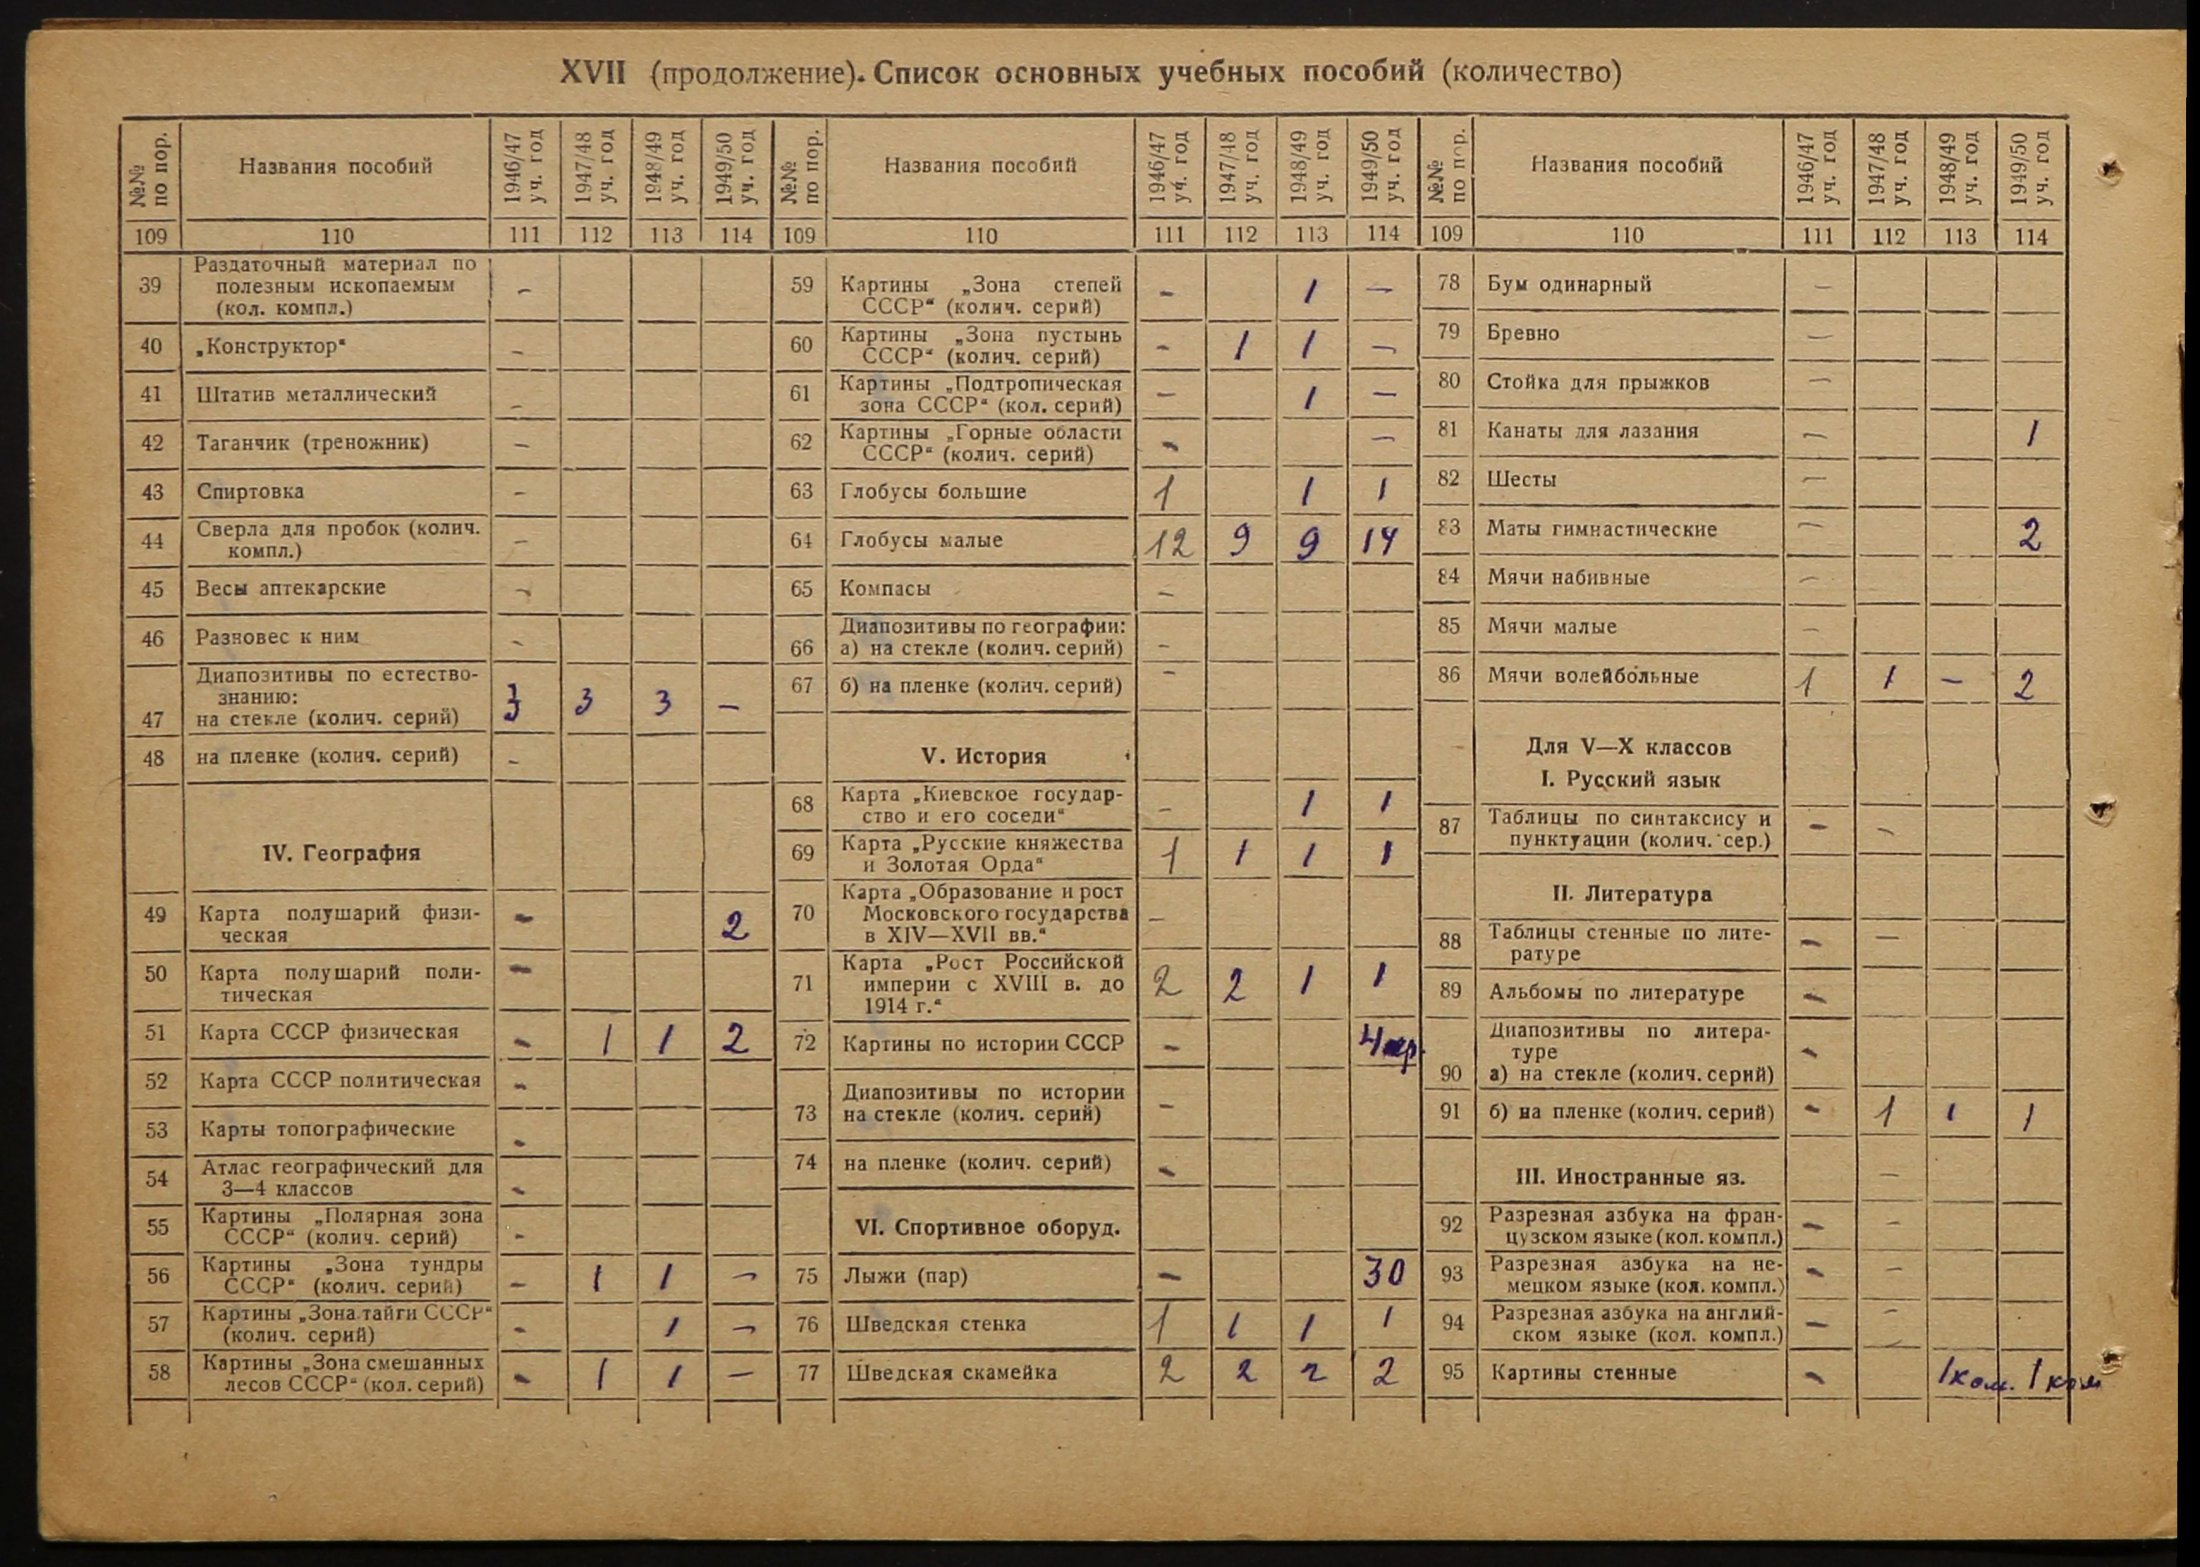 XVII (продолжение). Список основных учебных пособий (количество)
№№ по пор. Названия пособий 1946/47 уч. год 1947/48 уч. год 1948/49 уч. год 1949/50 уч. год
109 110 111 112 113 114
39 Раздаточный материал по
полезным ископаемым
(кол. компл.) –
40 „Конструктор“ –
41 Штатив металлический –
42 Таганчик (треножник) –
43 Спиртовка –
44 Сверла для пробок (колич.
компл.) –
45 Весы аптекарские –
46 Разновес к ним –
Диапозитивы по естество-
знанию:
47 на стекле (колич. серий) 3 3 3 –
48 на пленке (колич. серий) –
IV. География
49 Карта полушарий физи-
ческая – 2
50 Карта полушарий поли-
тическая –
51 Карта СССР физическая – 1 1 2
52 Карта СССР политическая –
53 Карты топографические –
54 Атлас географический для
3—4 классов –
55 Картины „Полярная зона
СССР“ (колич. серий) –
56 Картины „Зона тундры
СССР“ (колич. серий) – 1 1 –
57 Картины „Зона тайги СССР“
(колич. серий) – 1 –
58 Картины „Зона смешанных
лесов СССР“ (кол. серий) – 1 1 –
№№ по пор. Названия пособий 1946/47 уч. год 1947/48 уч. год 1948/49 уч. год 1949/50 уч. год
109 110 111 112 113 114
59 Картины „Зона степей
СССР“ (колич. серий) – 1 –
60 Картины „Зона пустынь
СССР“ (колич. серий) – 1 1 –
61 Картины „Подтропическая
зона СССР“ (кол. серий) – 1 –
62 Картины „Горные области
СССР“ (колич. серий) – –
63 Глобусы большие 1 1 1
64 Глобусы малые 12 9 9 14
65 Компасы –
Диапозитивы по географии:
66 а) на стекле (колич. серий) –
67 б) на пленке (колич. серий) –
V. История
68 Карта „Киевское государ-
ство и его соседи“ – 1 1
69 Карта „Русские княжества
и Золотая Орда“ 1 1 1 1
70 Карта „Образование и рост
Московского государства
в XIV—XVII вв.“ –
71 Карта „Рост Российской
империи с XVIII в. до
1914 г.“ 2 2 1 1
72 Картины по истории СССР – 4
Диапозитивы по истории
73 на стекле (колич. серий) –
74 на пленке (колич. серий) –
VI. Спортивное оборуд.
75 Лыжи (пар) – 30
76 Шведская стенка 1 1 1 1
77 Шведская скамейка 2 2 2 2
№№ по пор. Названия пособий 1946/47 уч. год 1947/48 уч. год 1948/49 уч. год 1949/50 уч. год
109 110 111 112 113 114
78 Бум одинарный –
79 Бревно –
80 Стойка для прыжков –
81 Канаты для лазания – 1
82 Шесты –
83 Маты гимнастические – 2
84 Мячи набивные –
85 Мячи малые –
86 Мячи волейбольные 1 1 – 2
Для V—X классов
I. Русский язык
87 Таблицы по синтаксису и
пунктуации (колич. сер.) – –
II. Литература
88 Таблицы стенные по лите-
ратуре – –
89 Альбомы по литературе –
Диапозитивы по литера-
туре
90 а) на стекле (колич. серий) –
91 б) на пленке (колич. серий) – 1 1 1
III. Иностранные яз. –
92 Разрезная азбука на фран-
цузском языке (кол. компл.) – –
93 Разрезная азбука на не-
мецком языке (кол. компл.) – –
94 Разрезная азбука на англий-
ском языке (кол. компл.) – –
95 Картины стенные – – 1 ком. 1 ком